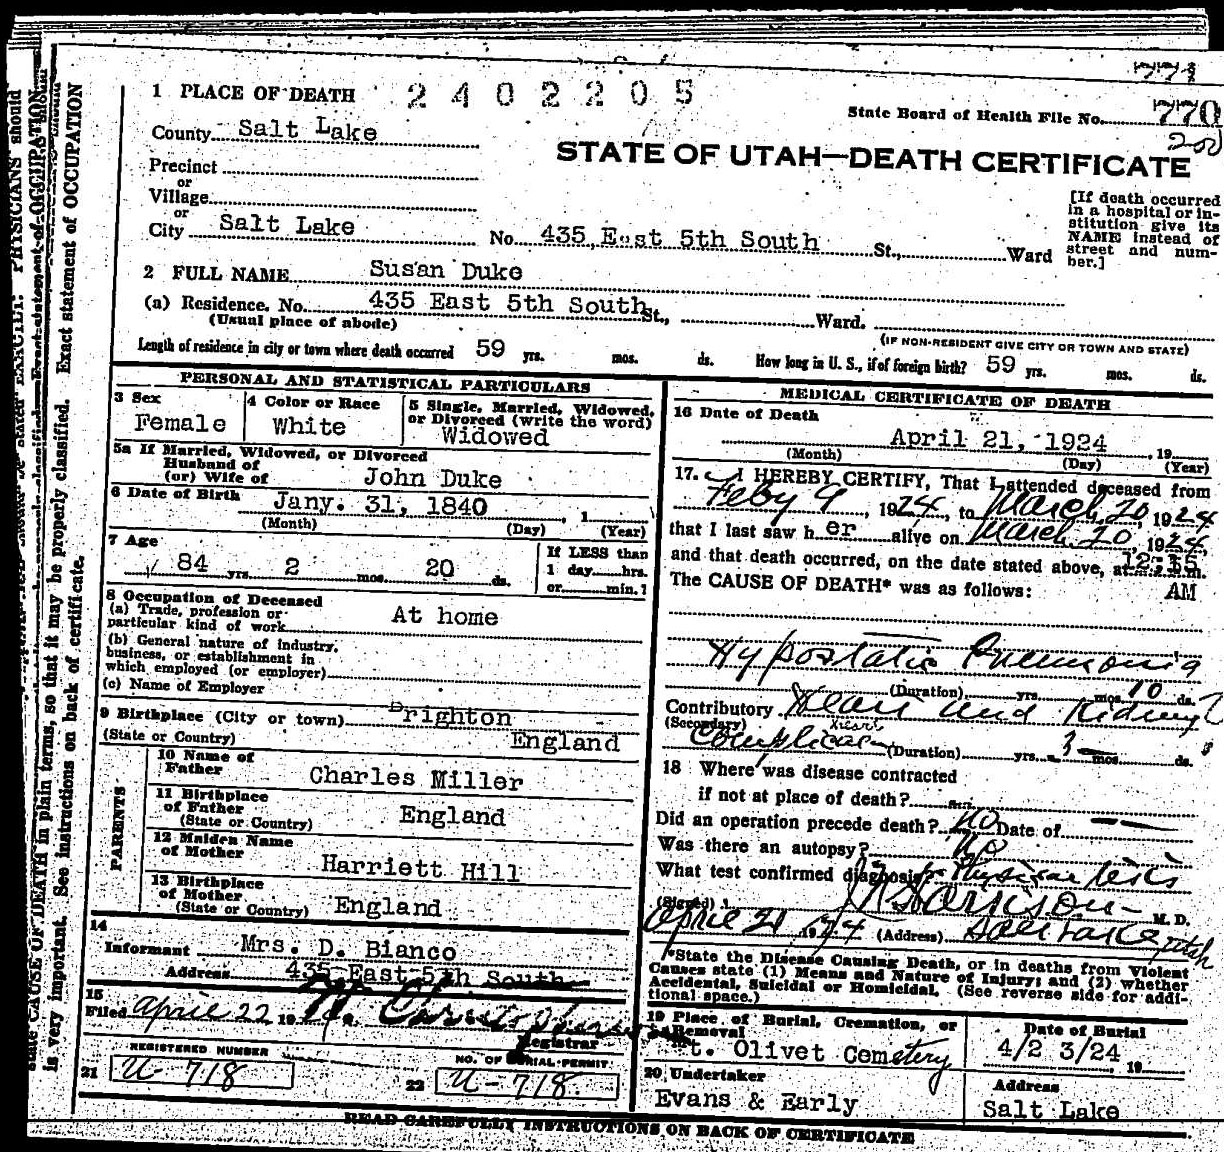 773
1 PLACE OF DEATH 2402205
State Board of Health File No. 770
200
County Salt Lake
STATE OF UTAH—DEATH CERTIFICATE
Precinct
or
Village
or
City Salt Lake No. 435 East 5th South St., Ward
[If death occurred
in a hospital or in-
stitution give its
NAME instead of
street and num-
ber.]
2 FULL NAME Susan Duke
(a) Residence. No. 435 East 5th South St., Ward.
(Usual place of abode)
(IF NON-RESIDENT GIVE CITY OR TOWN AND STATE)
Length of residence in city or town where death occurred 59 yrs. mos. ds. How long in U. S., if of foreign birth? 59 yrs. mos. ds.
PERSONAL AND STATISTICAL PARTICULARS
3 Sex
Female
4 Color or Race
White
5 Single, Married, Widowed,
or Divorced (write the word)
Widowed
5a If Married, Widowed, or Divorced
Husband of
(or) Wife of John Duke
6 Date of Birth Jany. 31, 1840, 1
(Month) (Day) (Year)
7 Age
84 yrs. 2 mos. 20 ds.
If LESS than
1 day hrs.
or min.?
8 Occupation of Deceased
(a) Trade, profession or
particular kind of work At home
(b) General nature of industry,
business, or establishment in
which employed (or employer)
(c) Name of Employer
9 Birthplace (City or town) Brighton
(State or Country) England
PARENTS
10 Name of
Father Charles Miller
11 Birthplace
of Father
(State or Country) England
12 Maiden Name
of Mother Harriett Hill
13 Birthplace
of Mother
(State or Country) England
14
Informant Mrs. D. Bianco
Address 435 East 5th South
15
Filed April 22 19
Registrar
REGISTERED NUMBER
21 U-718
NO. OF BURIAL PERMIT
22 U-718
MEDICAL CERTIFICATE OF DEATH
16 Date of Death
April 21, 1924, 19
(Month) (Day) (Year)
17. I HEREBY CERTIFY, That I attended deceased from
Feby 9, 1924, to March 20, 1924
that I last saw h er alive on March 20, 1924,
and that death occurred, on the date stated above, at 12:15 m.
AM
The CAUSE OF DEATH* was as follows:
Hypostatic Pneumonia
(Duration) yrs. mos. 10 ds.
Contributory Heart and Kidney
(Secondary)
(Duration) yrs. 3 mos. ds.
18 Where was disease contracted
if not at place of death?
Did an operation precede death? No Date of
Was there an autopsy? No
What test confirmed diagnosis? Physical tests
(Signed) Harrison M. D.
April 21 1924 (Address) Salt Lake Utah
*State the Disease Causing Death, or in deaths from Violent
Causes state (1) Means and Nature of Injury; and (2) whether
Accidental, Suicidal or Homicidal. (See reverse side for addi-
tional space.)
19 Place of Burial, Cremation, or
Removal
Mt. Olivet Cemetery
Date of Burial
4/2 3/24, 19
20 Undertaker
Evans & Early
Address
Salt Lake
READ CAREFULLY INSTRUCTIONS ON BACK OF CERTIFICATE
PHYSICIANS should
state CAUSE OF DEATH in plain terms, so that it may be properly classified. Exact statement of OCCUPATION
is very important. See instructions on back of certificate.